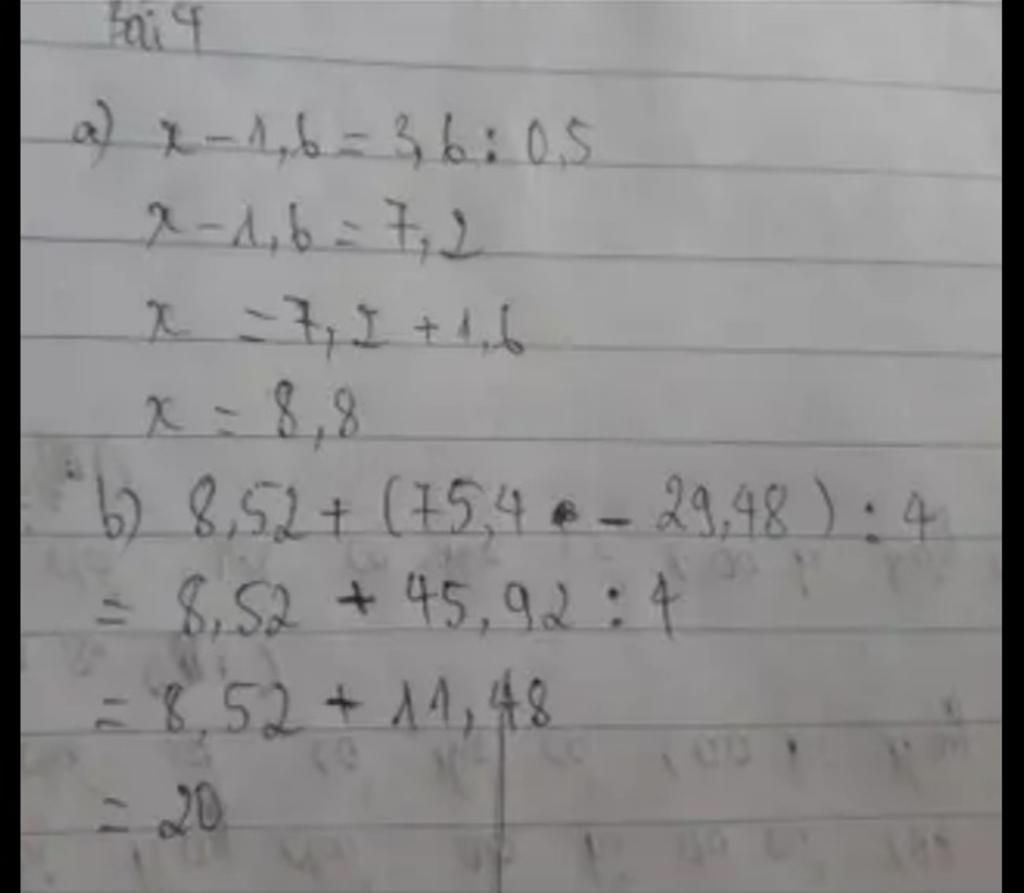 Bài 4
a) x - 1,6 = 3,6 : 0,5
x - 1,6 = 7,2
x = 7,2 + 1,6
x = 8,8
b) 8,52 + (75,4 - 29,48) : 4
= 8,52 + 45,92 : 4
= 8,52 + 11,48
= 20